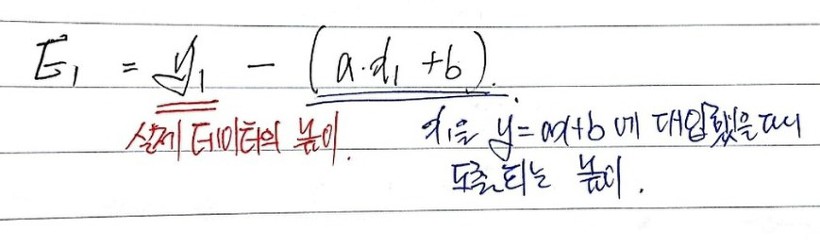 E₁ = y₁ - (a·x₁ + b).
실제 데이터의 높이. x₁을 y=ax+b에 대입했을 때
도출되는 높이.